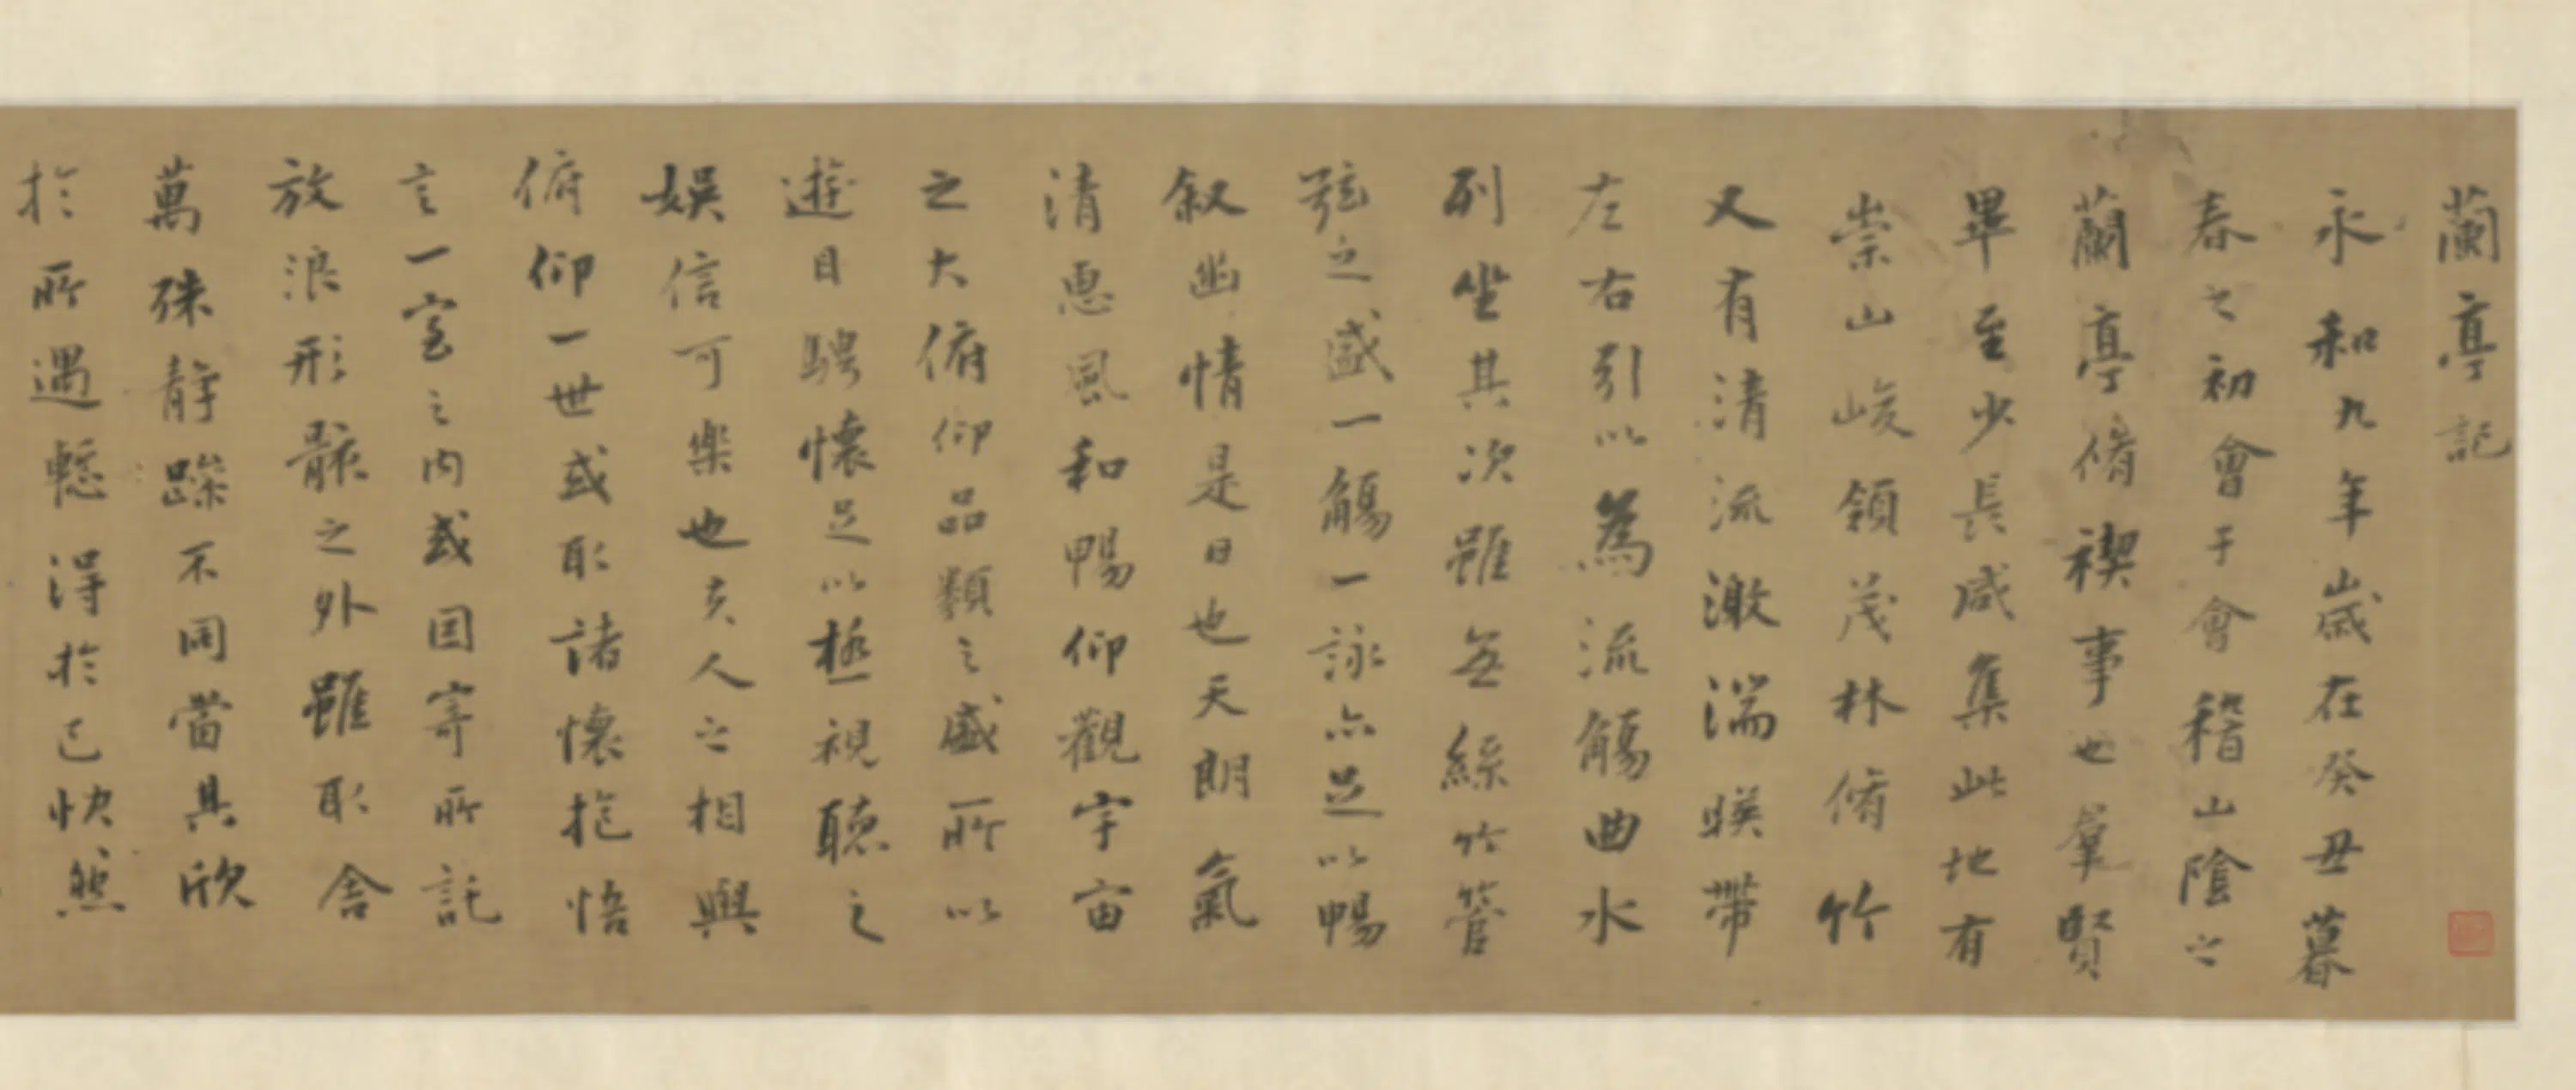 蘭亭記
永和九年歲在癸丑暮
春之初會于會稽山陰之
蘭亭脩禊事也羣賢
畢至少長咸集此地有
崇山峻領茂林脩竹
又有清流激湍暎帶
左右引以為流觴曲水
列坐其次雖無絲竹管
弦之盛一觴一詠亦足以暢
叙幽情是日也天朗氣
清惠風和暢仰觀宇宙
之大俯仰品類之盛所以
遊目騁懷足以極視聽之
娛信可樂也夫人之相與
俯仰一世或取諸懷抱悟
言一室之內或因寄所託
放浪形骸之外雖取舍
萬殊静躁不同當其欣
於所遇蹔得於己快然